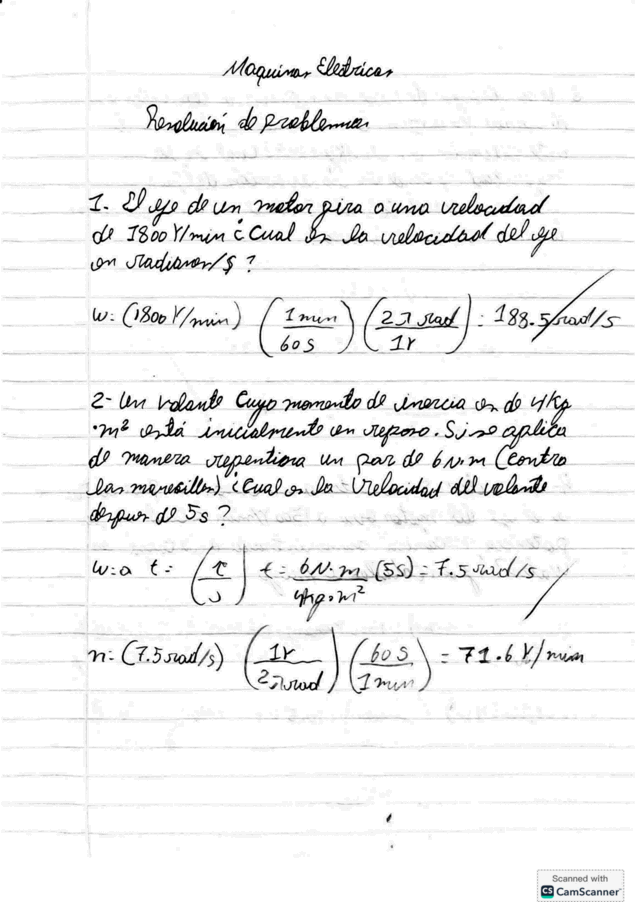 Maquinas Electricas
Resolución de problemas
1. El eje de un motor gira a una velocidad
de 1800 r/min ¿Cual es la velocidad del eje
en radianes/s?
w: (1800 r/min) (1 min / 60 s) (2π rad / 1r) = 188.5 rad/s
2- Un volante Cuyo momento de inercia es de 4Kg
·m² está inicialmente en reposo. Si se aplica
de manera repentiona un par de 6 N·m (contra
las manecillas) ¿cual es la velocidad del volante
despues de 5s?
w: a t = (τ / J) t = 6N·m / 4kg·m² (5s) = 7.5 rad/s
n: (7.5 rad/s) (1r / 2π rad) (60 s / 1 min) = 71.6 r/min
Scanned with
CS CamScanner